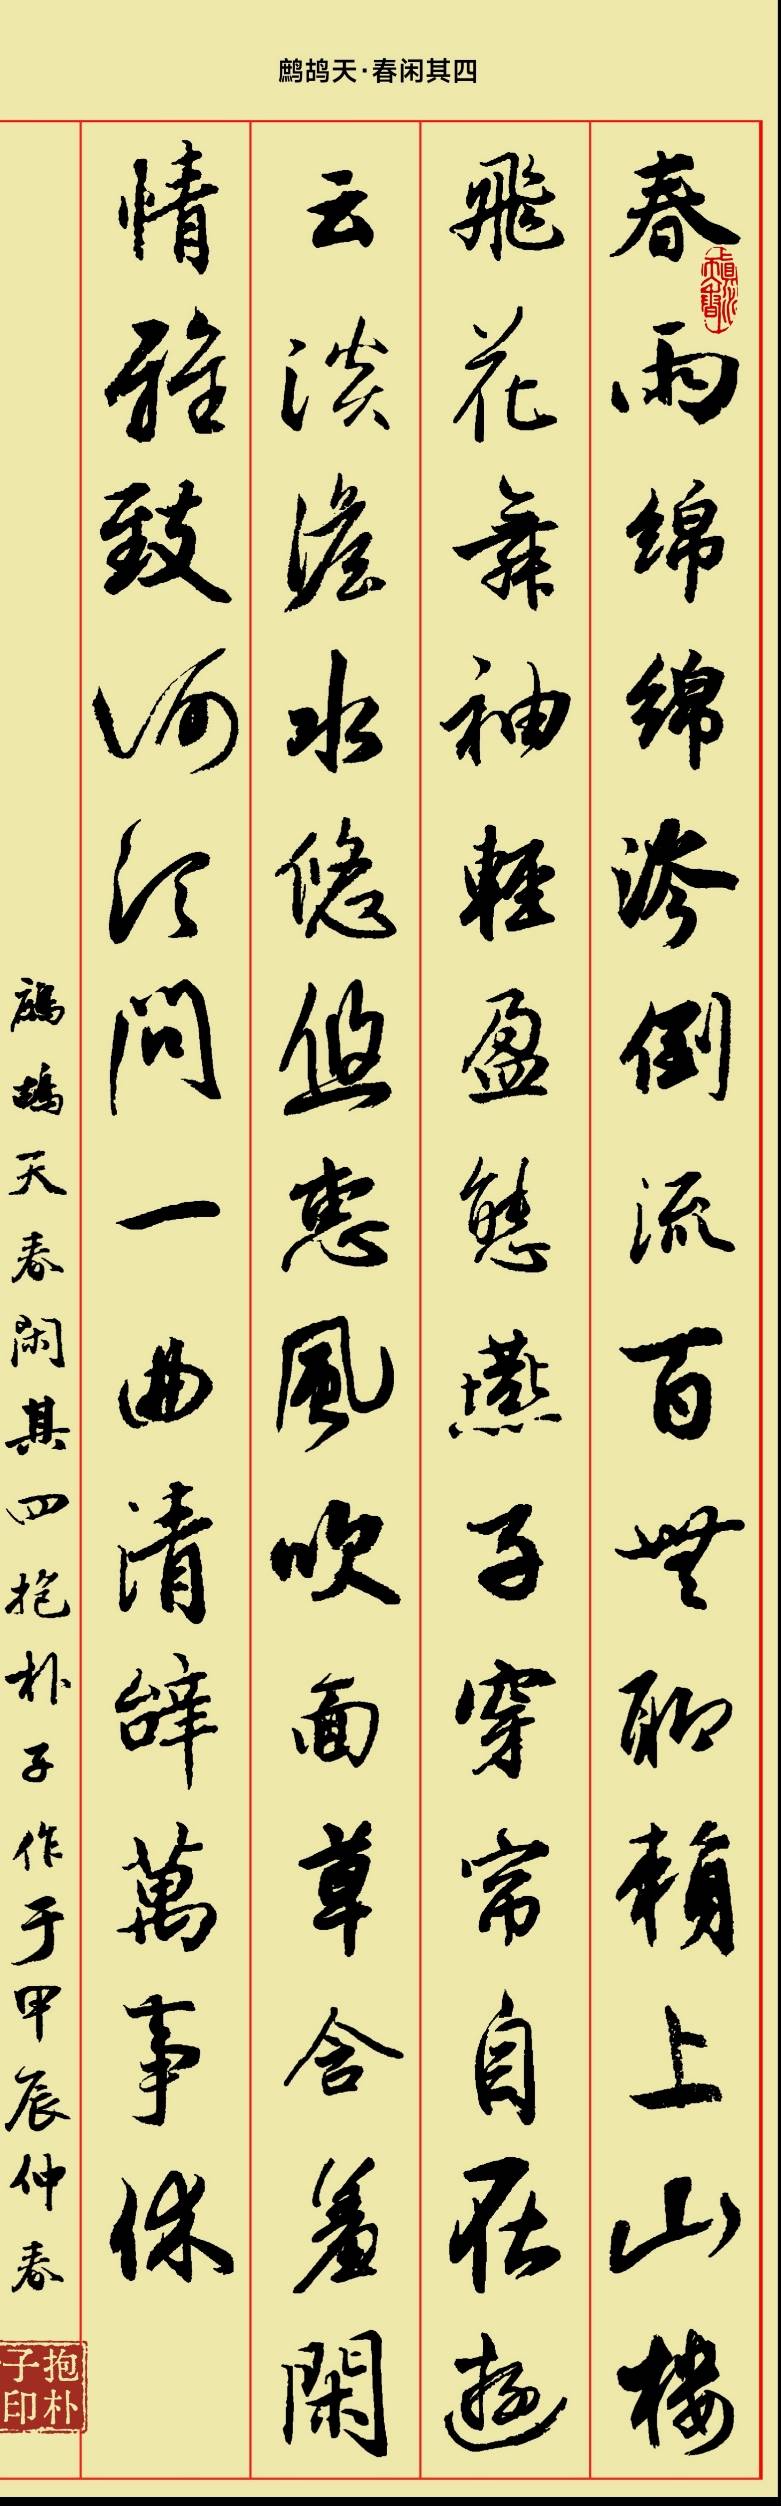 鹧鸪天·春闲其四
春雨绵绵渗倒流百無聊賴上山樓
飛花舞袖輕盈態燕子穿帘自在遊
云淡澹水悠悠惠風吹面草含羞閑
情雅致何須問一曲清辭萬事休
鷓鴣天春閑其四抱朴子作于甲辰仲春
真水无香
抱朴子印